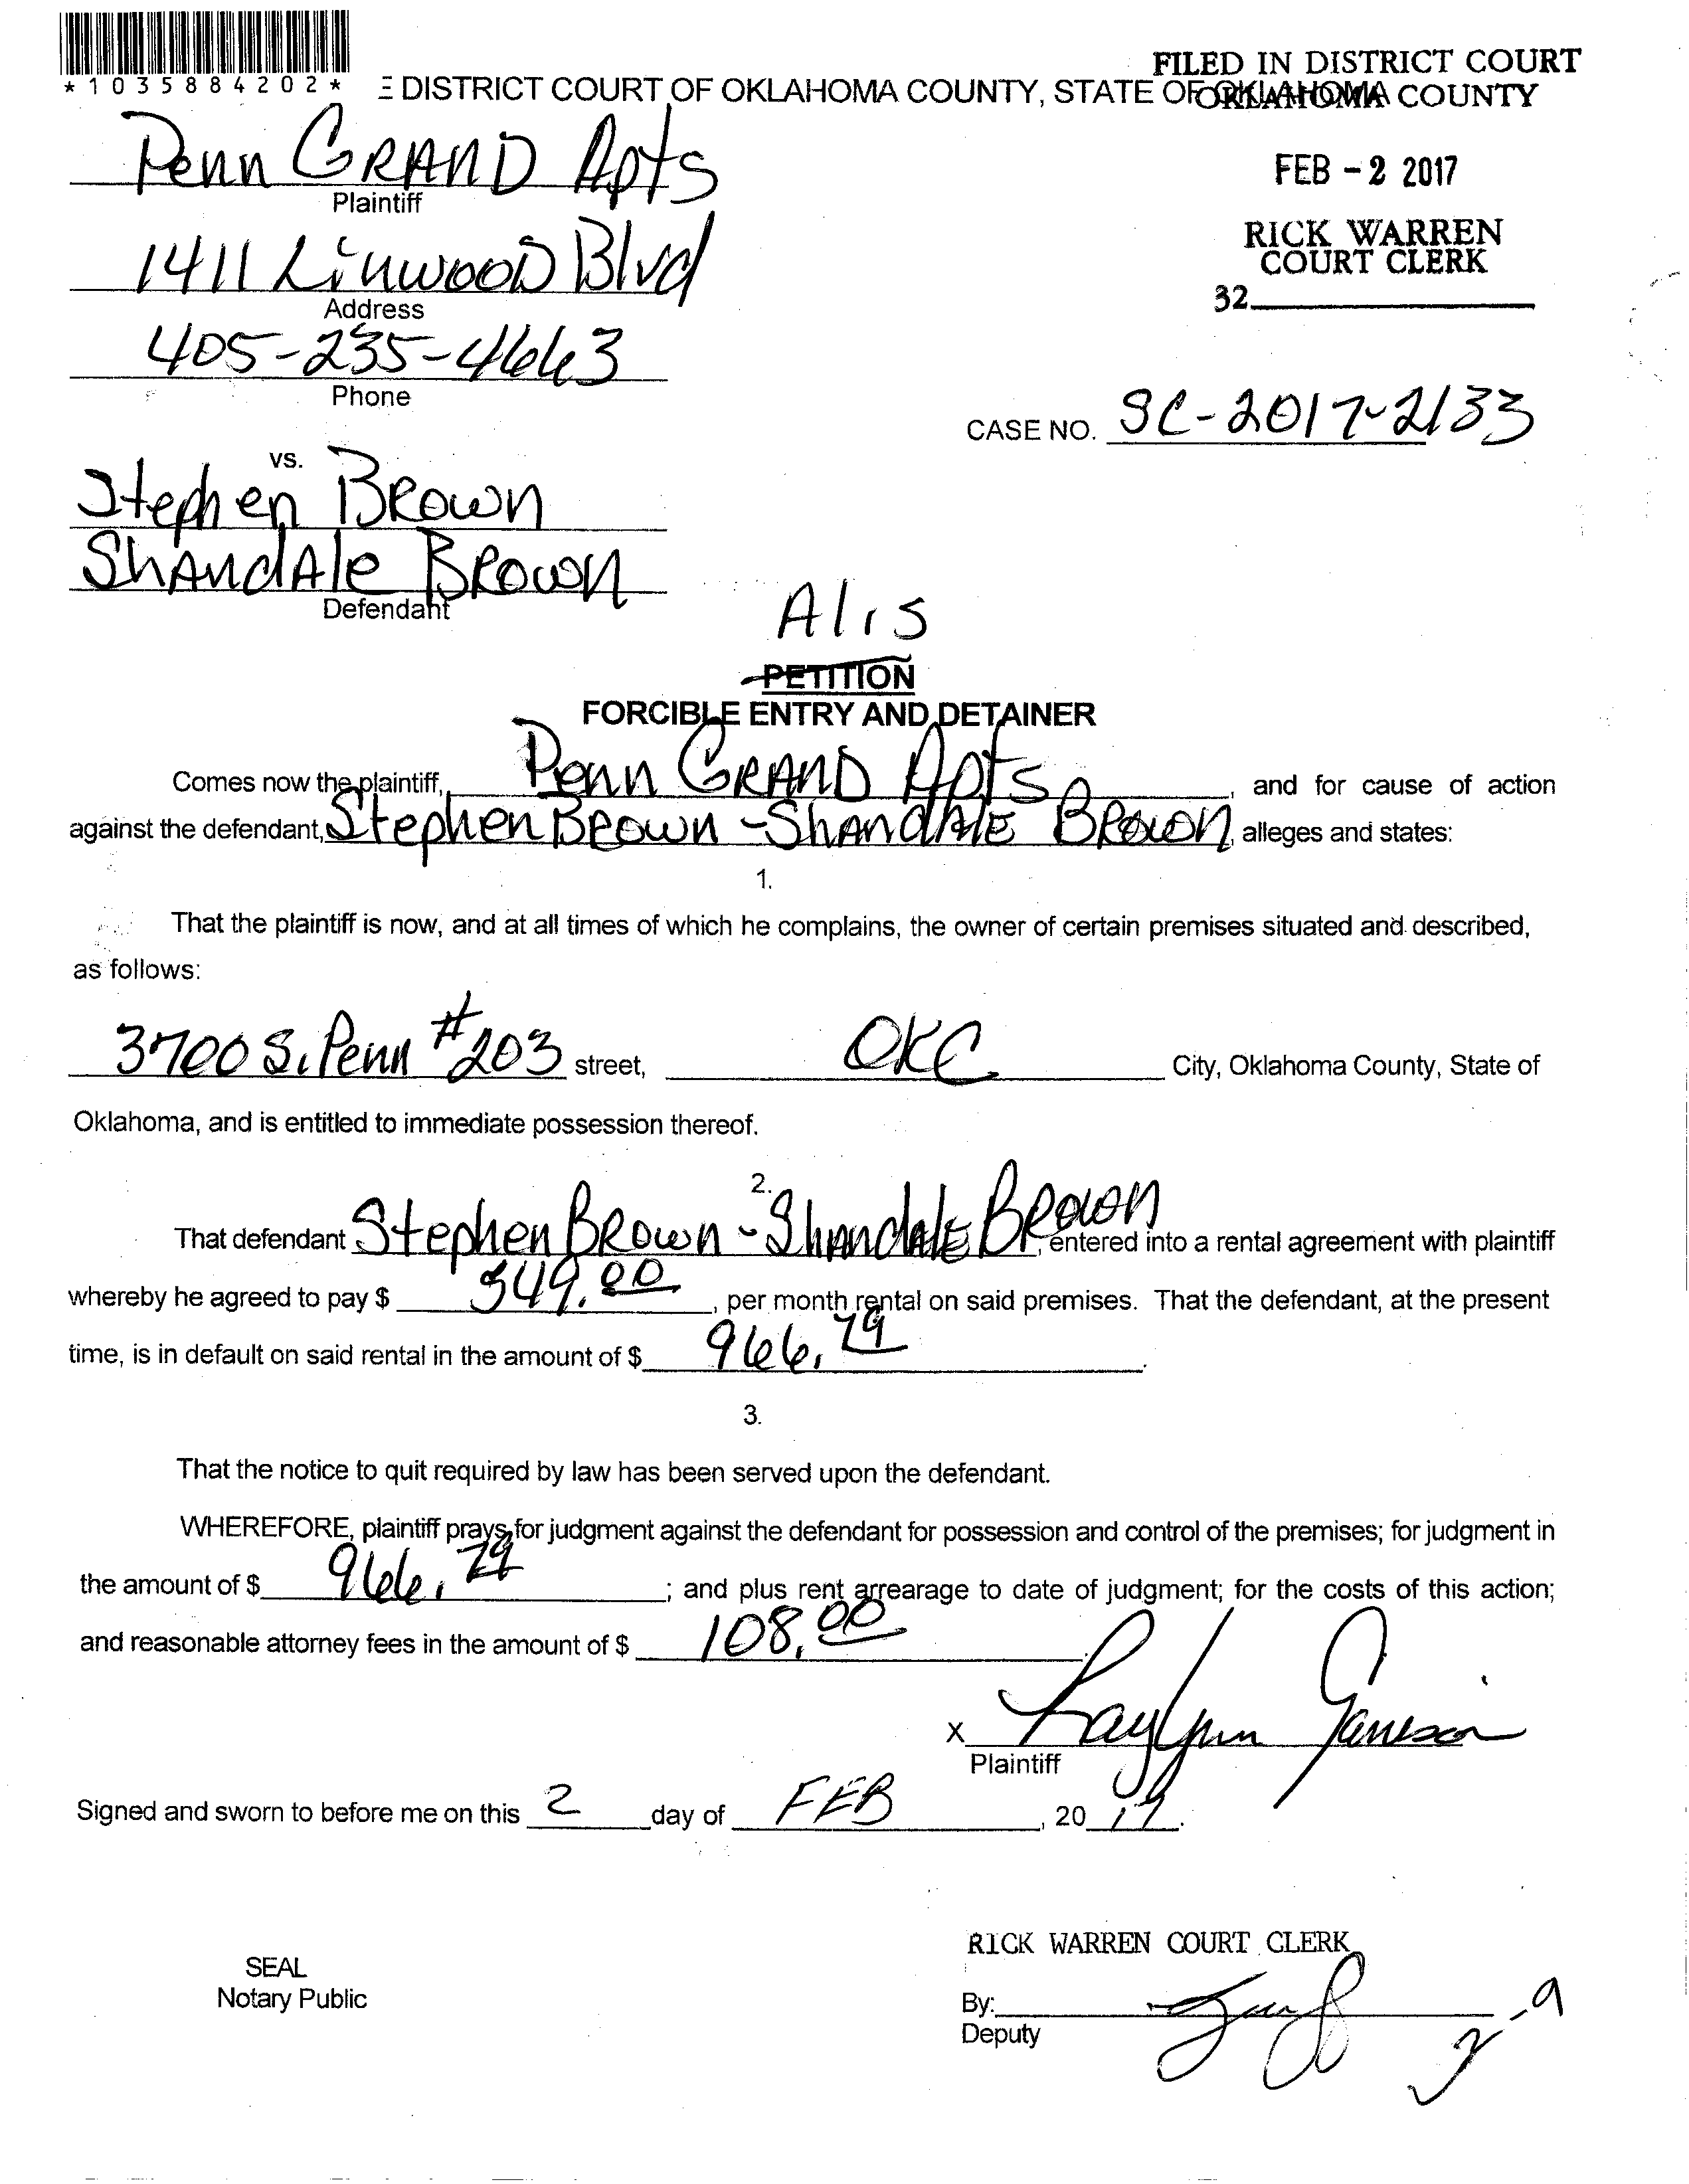 *1035884202*
FILED IN DISTRICT COURT
OKLAHOMA COUNTY
E DISTRICT COURT OF OKLAHOMA COUNTY, STATE OF OKLAHOMA
FEB -2 2017
RICK WARREN
COURT CLERK
32
Penn GRAND Apts
Plaintiff
1411 LinwooD Blvd
Address
405-235-4663
Phone
CASE NO. SC-2017-2133
vs.
Stephen BROWN
ShANdAle BROWN
Defendant
Alis
PETITION
FORCIBLE ENTRY AND DETAINER
Comes now the plaintiff, Penn GRAND Apts, and for cause of action
against the defendant, Stephen BROWN - ShANdAlE BROWN, alleges and states:
1.
That the plaintiff is now, and at all times of which he complains, the owner of certain premises situated and described,
as follows:
3700 S. Penn #203 street, OKC City, Oklahoma County, State of
Oklahoma, and is entitled to immediate possession thereof.
2.
That defendant Stephen BROWN - ShANdAlE BROWN, entered into a rental agreement with plaintiff
whereby he agreed to pay $ 549.00, per month rental on said premises. That the defendant, at the present
time, is in default on said rental in the amount of $ 966.79.
3.
That the notice to quit required by law has been served upon the defendant.
WHEREFORE, plaintiff prays for judgment against the defendant for possession and control of the premises; for judgment in
the amount of $ 966.79; and plus rent arrearage to date of judgment; for the costs of this action;
and reasonable attorney fees in the amount of $ 108.00.
X
Plaintiff
Signed and sworn to before me on this 2 day of FEB, 20 17.
SEAL
Notary Public
RICK WARREN COURT CLERK
By:
Deputy
2-9